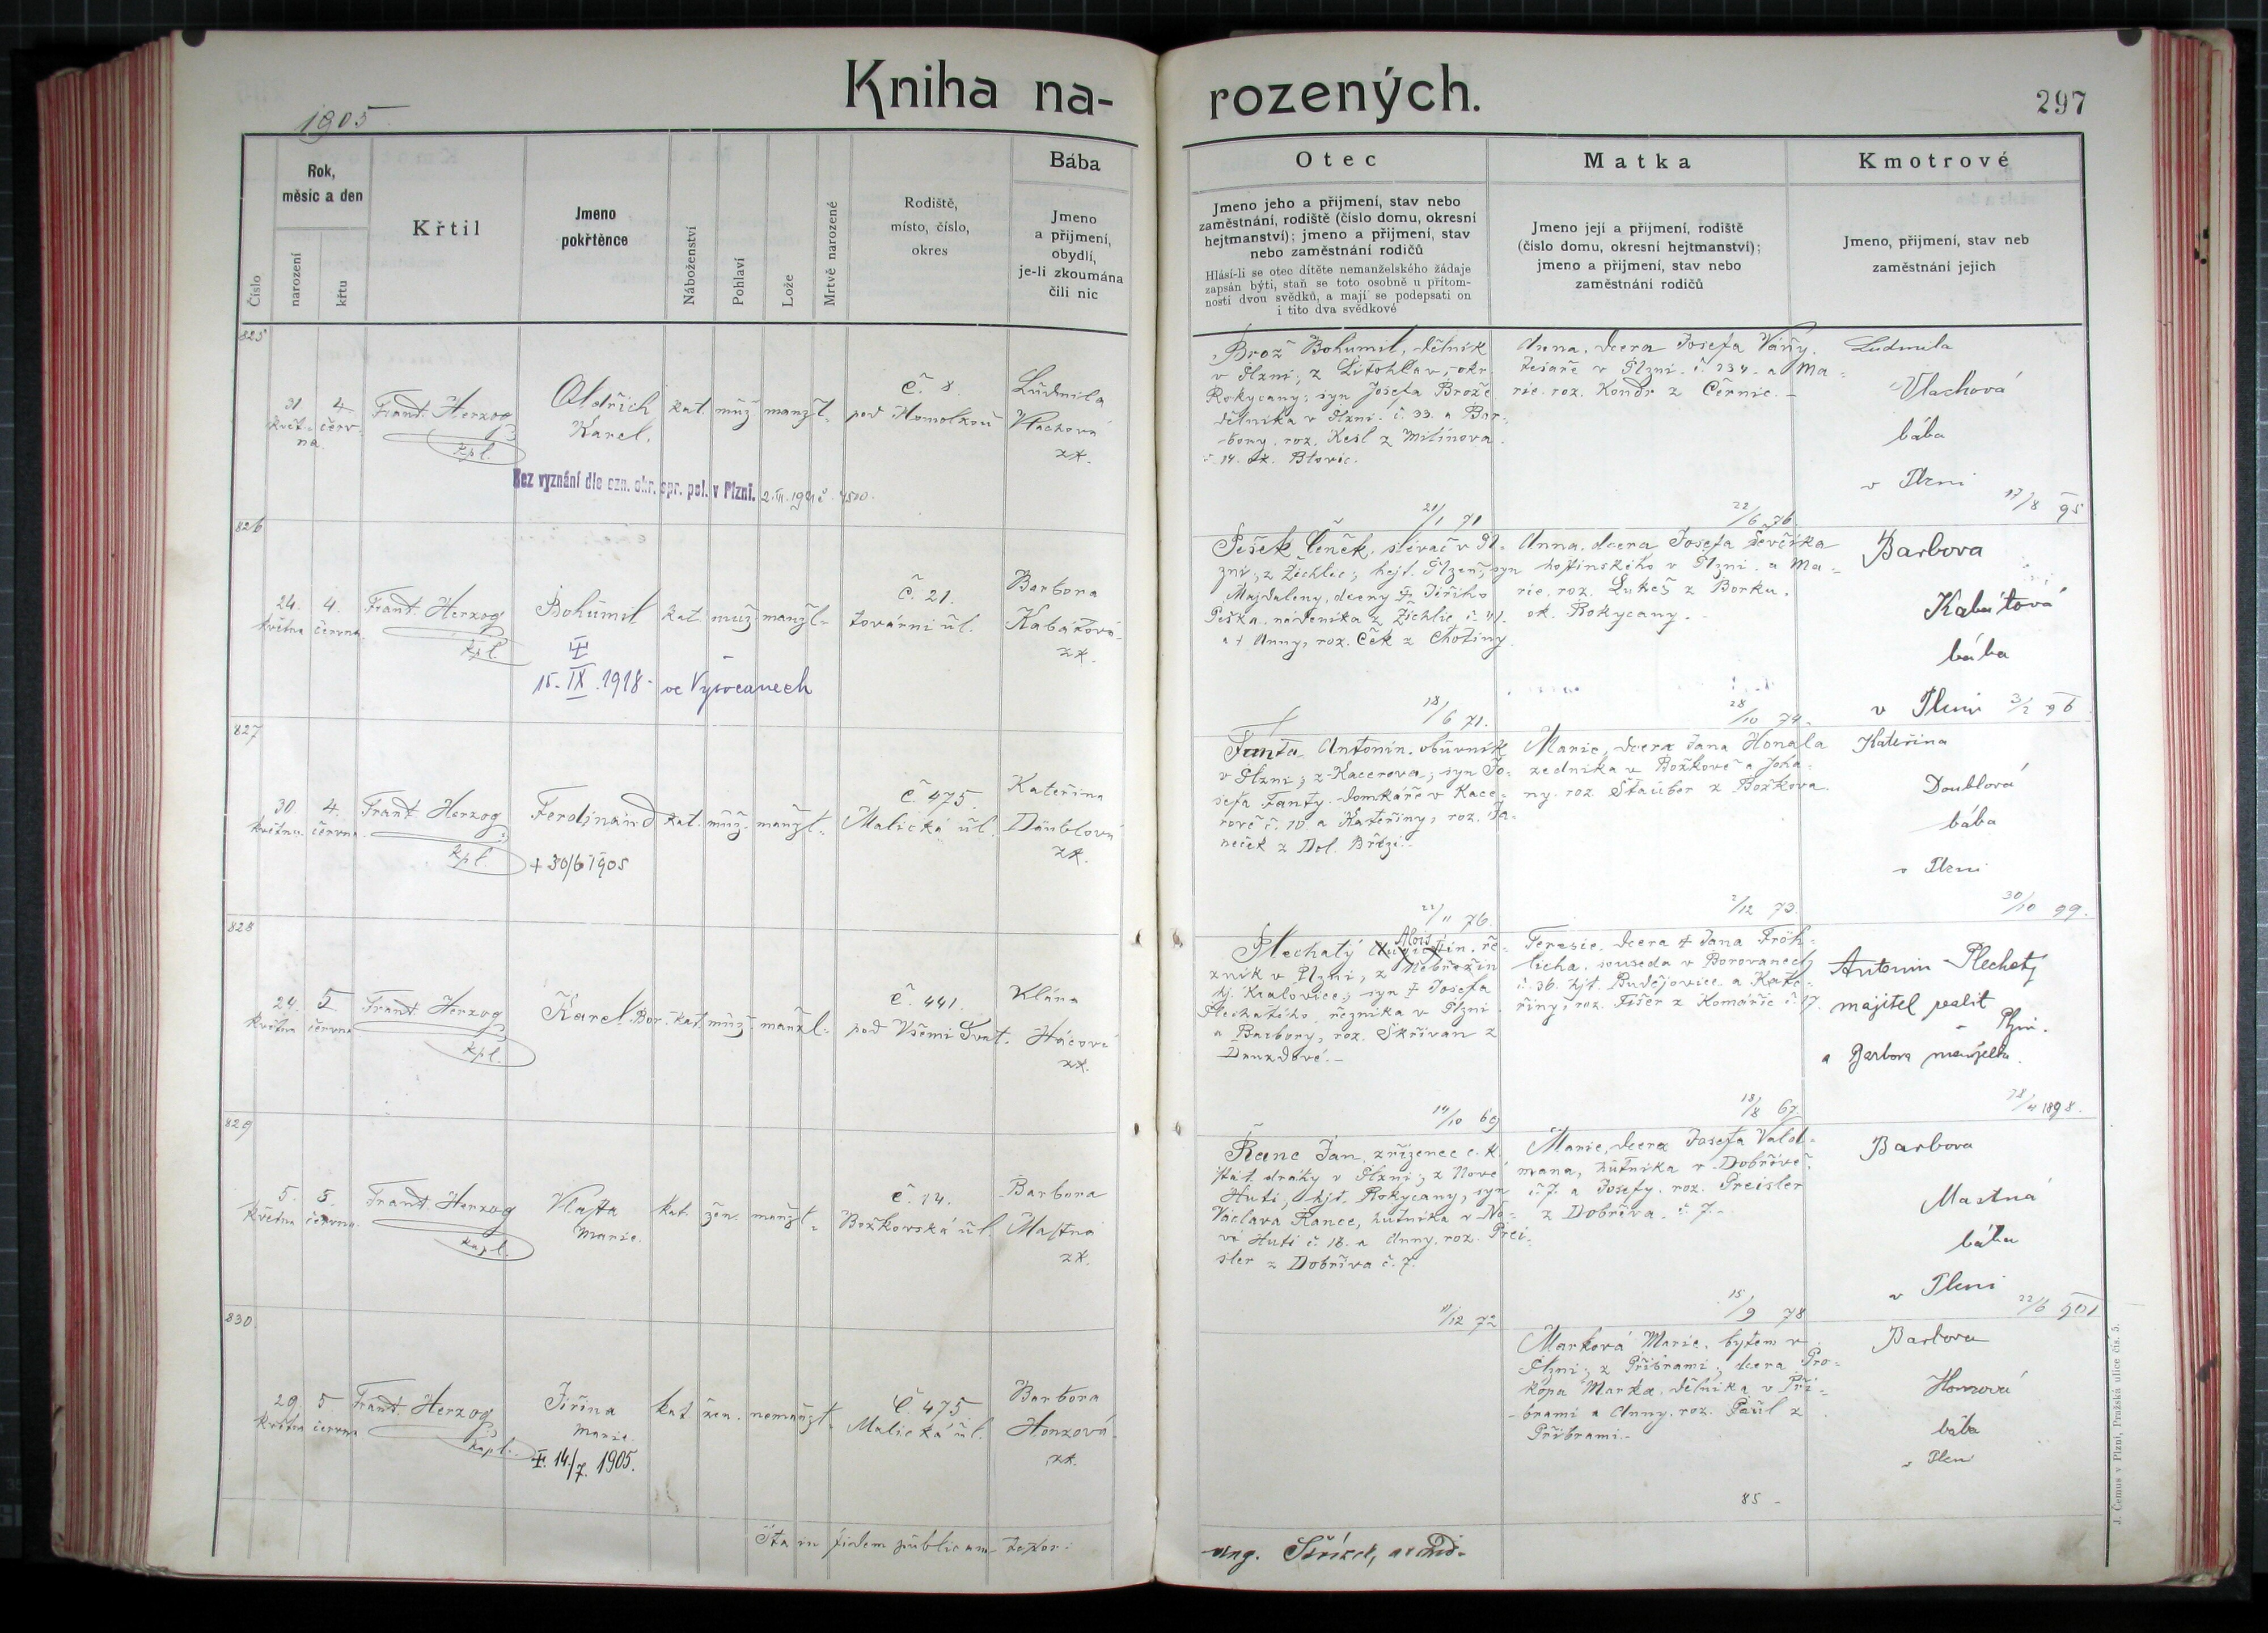 Kniha na-
rozených.
297
1905
Číslo
Rok,
měsíc a den
narození
křtu
Křtil
Jmeno
pokřtěnce
Náboženství
Pohlaví
Lože
Mrtvě narozené
Rodiště,
místo, číslo,
okres
Bába
Jmeno
a přijmení,
obydlí,
je-li zkoumána
čili nic
Otec
Jmeno jeho a přijmení, stav nebo
zaměstnání, rodiště (číslo domu, okresní
hejtmanství); jmeno a přijmení, stav
nebo zaměstnání rodičů
Hlásí-li se otec dítěte nemanželského žádaje
zapsán býti, staň se toto osobně u přítom-
nosti dvou svědků, a mají se podepsati on
i tito dva svědkové
Matka
Jmeno její a přijmení, rodiště
(číslo domu, okresní hejtmanství);
jmeno a přijmení, stav nebo
zaměstnání rodičů
Kmotrové
Jmeno, přijmení, stav neb
zaměstnání jejich
825
31
květ-
na.
4
červ-
Frant. Herzog
kpl.
Oldřich
Karel.
kat.
muž
manžl.
č. 8
pod Homolkou
Ludmila
Vlachová
zk.
Bez vyznání dle ozn. okr. spr. pol. v Plzni.
Brož Bohumil, dělník
v Plzni; z Litohlav, okr.
Rokycany; syn Josefa Brože
dělníka v Plzni č. 33. a Bar-
bory, roz. Kesl z Milínova
č. 14. ok. Blovic.
21/1 71
Anna, dcera Josefa Váňy,
tesaře v Plzni č. 234. a Ma-
rie, roz. Kondr z Černic.
22/6 76.
Ludmila
Vlachová
bába
v Plzni
17/8 95
826
24.
května
4.
června
Frant. Herzog
kpl.
Bohumil
15. IX. 1918 ve Vysočanech
kat.
muž.
manžl.
č. 21.
tovární ul.
Barbora
Kabátová
zk.
Pešek Čeněk, slévač v Pl-
zni; z Žichlic; hejt. Plzeň; syn
Majdaleny, dcery † Jiřího
Peška, nádeníka z Žichlic č. 41.
a † Anny, roz. Ček z Chotiny
18/6 71.
Anna, dcera Josefa Ševčíka
hostinského v Plzni a Ma-
rie, roz. Lukeš z Borku.
ok. Rokycany.
28/10 74.
Barbora
Kabátová
bába
v Plzni 3/2 96
827
30
května
4.
června.
Frant. Herzog
kpl.
Ferdinand
+ 30/6 1905
kat.
muž.
manžl.
č. 475.
Malická ul.
Kateřina
Daublová
zk.
Fanta Antonín, obuvník
v Plzni; z Kacerova; syn Jo-
sefa Fanty, domkáře v Kace-
rově č. 10. a Kateřiny, roz. Ja-
neček z Dol. Břízi.
22/11 76.
Marie, dcera Jana Honala
zedníka v Božkově a Joha-
ny, roz. Stauber z Božkova.
2/12 73.
Kateřina
Doublová
bába
v Plzni
30/10 99.
828
24.
května
5
června
Frant. Herzog
kpl.
Karel Bor.
kat.
muž.
manžl.
č. 441.
pod Všemi Svat.
Hácová
zk.
Alois
Plechatý Augustin, ře-
zník v Plzni, z Nebřezin
hj. Kralovice; syn † Josefa
Plechatého, řezníka v Plzni
a Barbory, roz. Skřivan z
14/10 69
Teresie, dcera † Jana Fröh-
licha, souseda v Borovanech
č. 36. hjt. Budějovice a Kate-
řiny, roz. Fišer z Komařic č. 17.
18/8 67.
Antonin Plechatý
majitel realit
Plzni.
a Barbora manželka.
18/4 1898.
829
5.
května
5.
června
Frant. Herzog
kapl.
Vlasta
Marie.
kat.
žen.
manžl.
č. 14.
Božkovská ul.
Barbora
Mastná
zk.
Ranc Jan, zřízenec c. k.
stát. dráhy v Plzni; z Nové
Huti, hjt. Rokycany, syn
Václava Rance, hutníka v No-
vé Huti č. 18. a Anny, roz. Prei-
sler z Dobříva č. 7.
11/12 72
Marie, dcera Josefa Vald-
mana, hutníka v Dobřívě
č. 7. a Josefy, roz. Preisler
z Dobříva č. 7.
15/9 78
Barbora
Mastná
bába
v Plzni
22/6 901
830.
29.
května
5
června
Frant. Herzog
kapl.
Jiřina
Marie.
14/7. 1905.
kat
žen.
nemanžl.
č. 475
Malická ul.
Barbora
Honzová
zk.
Marková Marie, bytem v
Plzni; z Příbrami; dcera Pro-
kopa Marka, dělníka v Pří-
brami a Anny, roz. Paul z
Příbrami.
85
Barbora
Honzová
bába
v Plzni
Ita in fidem publicam testor:
J. Čemus v Plzni, Pražská ulice čís. 5.